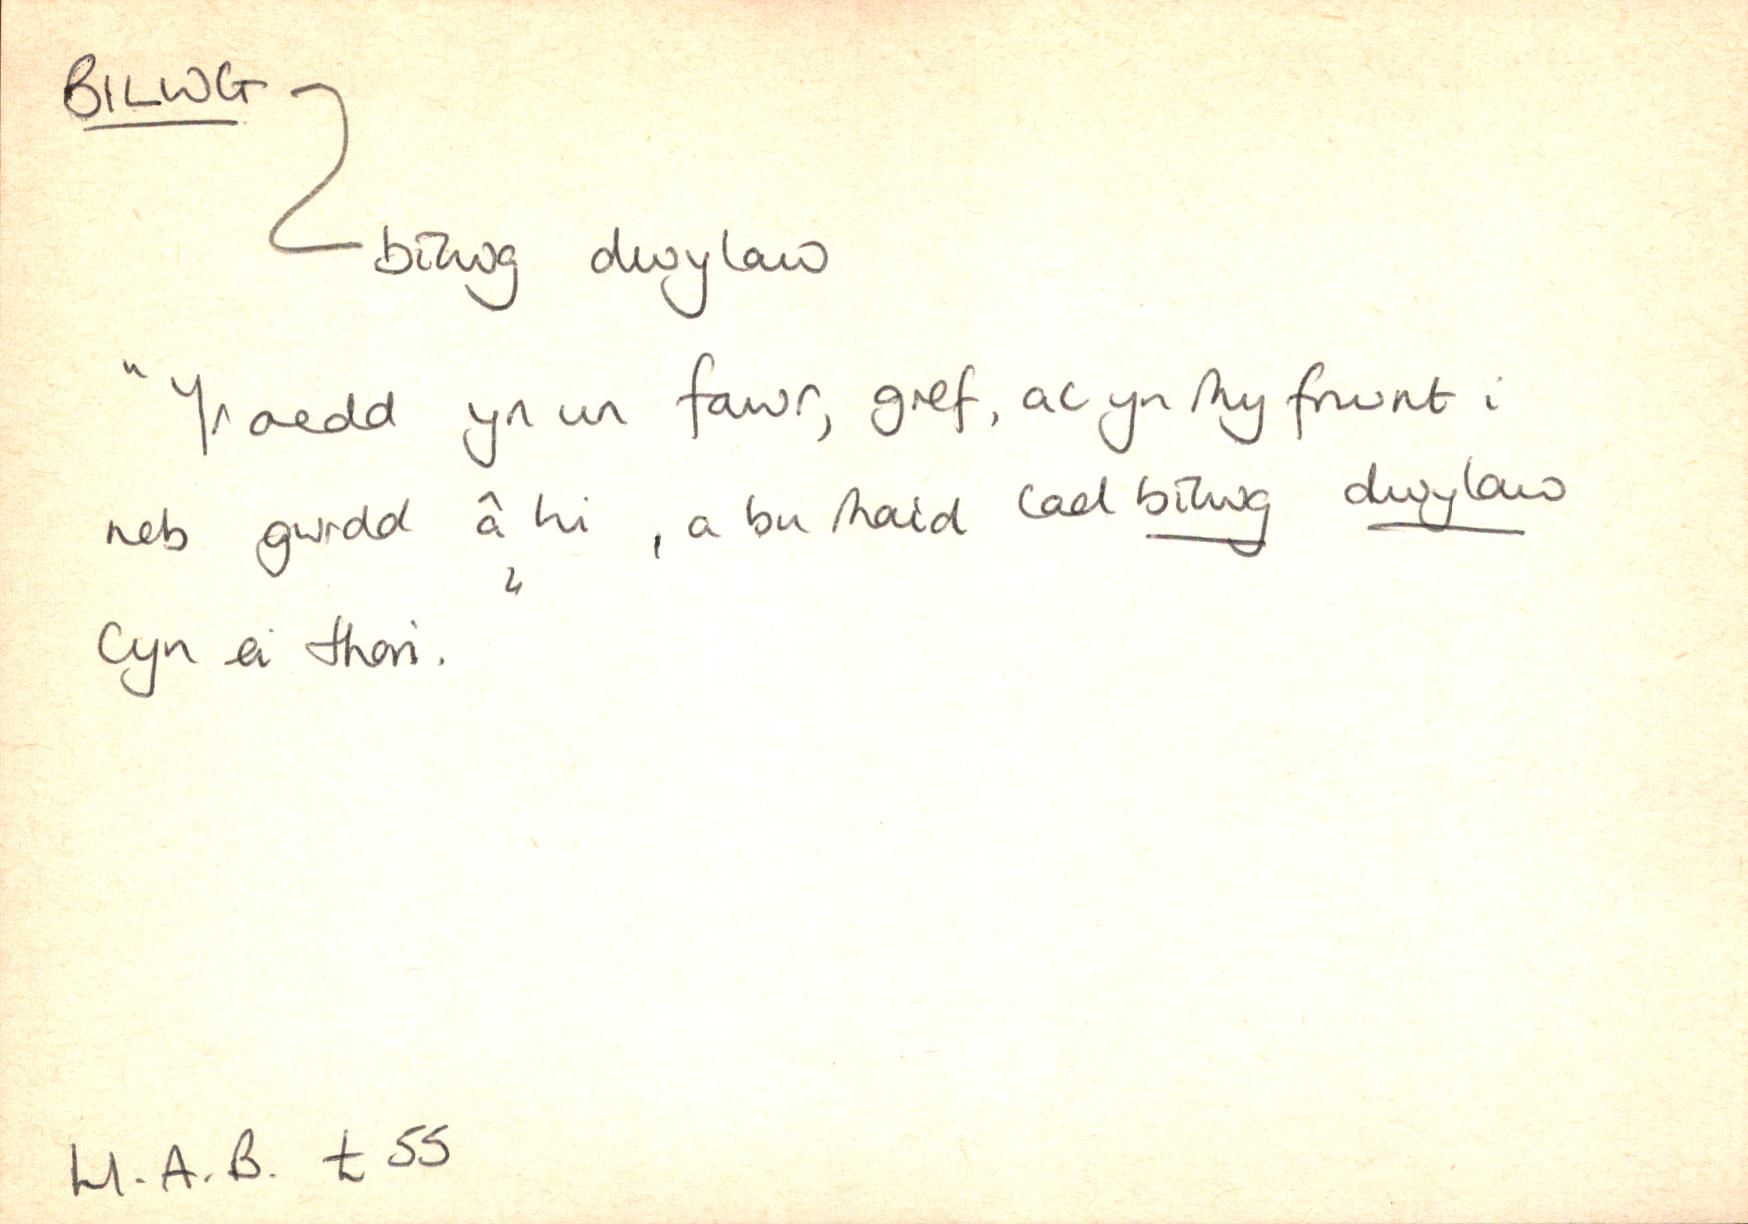 BILWG
bilwg dwylaw
"Yr oedd yn un fawr, gref, ac yn rhy frwnt i
neb gwrdd â hi, a bu rhaid cael bilwg dwylaw
cyn ei thori."
Ll.A.B. t 55